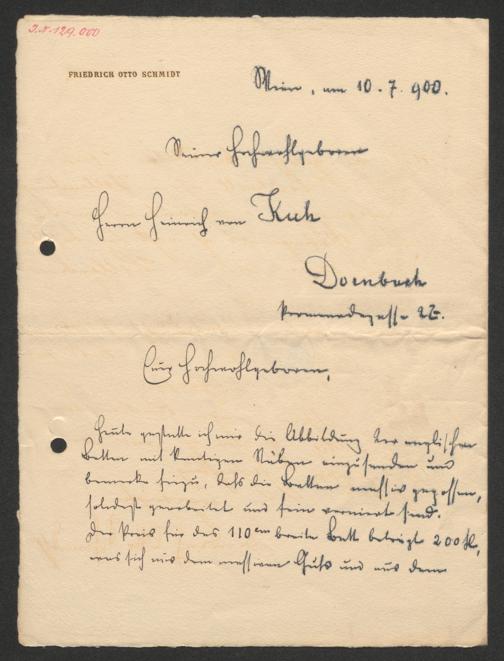 J.N. 129.000
FRIEDRICH OTTO SCHMIDT
Wien, am 10. 7. 900.
Seiner Hochwohlgeboren
Herrn Heinrich von Kuh
Dornbach
Promenadegasse
Euer Hochwohlgeboren,
Heute gestatte ich mir die Abbildung der englischen
Betten mit kantigen einzusenden und
bemerke hiezu, daß die Betten massiv gegossen,
solidest gearbeitet und fein vernirt sind.
Der Preis für das 110 cm breite Bett beträgt 200 fl,
was sich aus dem massiven Guß und aus dem